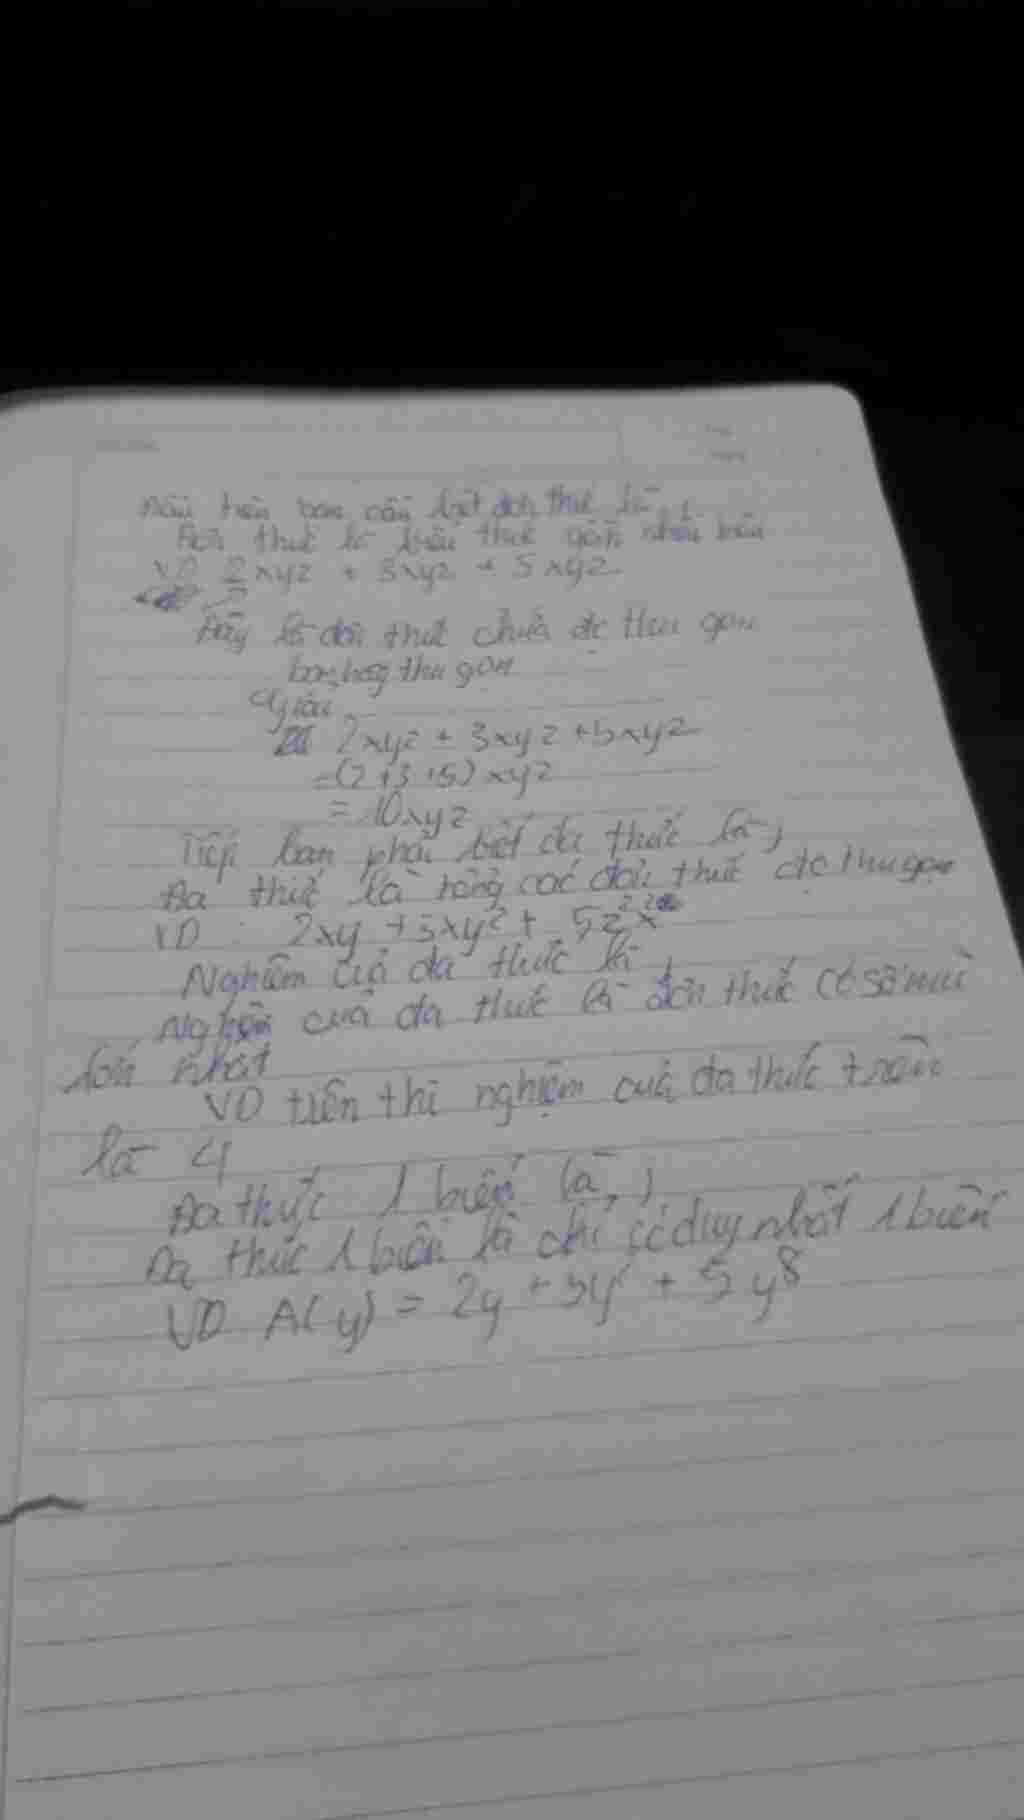 Đầu tiên bạn cần biết đơn thức là
Đơn thức là biểu thức gồm nhiều biến
VD 2xyz + 3xyz + 5xyz
Đây là đơn thức chưa đc thu gọn
bạn hãy thu gọn
Giải
2xyz + 3xyz + 5xyz
= (2+3+5) xyz
= 10xyz
Tiếp bạn phải biết đa thức là,
Đa thức là tổng các đơn thức đc thu gọn
VD 2xy + 3xy² + 5z²x²
Nghiệm của đa thức là,
Nghiệm của đa thức là đơn thức có số mũ
lớn nhất
VD trên thì nghiệm của đa thức trên
là 4
Đa thức 1 biến là,
Đa thức 1 biến là chỉ có duy nhất 1 biến
VD A(y) = 2y + 3y + 5y⁸